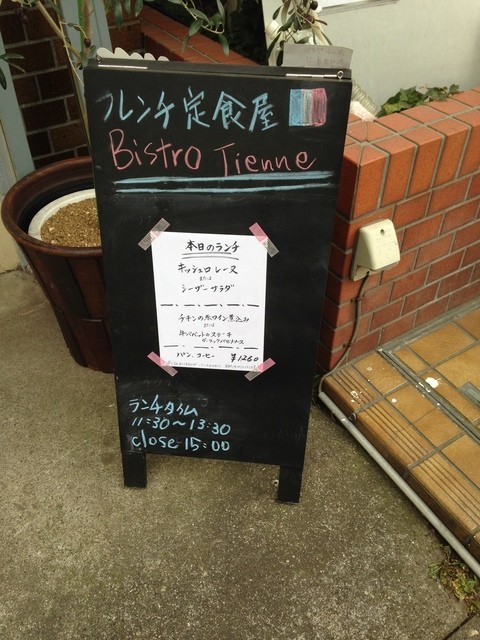 フレンチ定食屋
Bistro Tienne
本日のランチ
キッシュロレーヌ
または
シーザーサラダ
チキンの赤ワイン煮込み
または
ステーキ
パン、コーヒー ¥1260
ランチタイム
11:30〜13:30
close 15:00